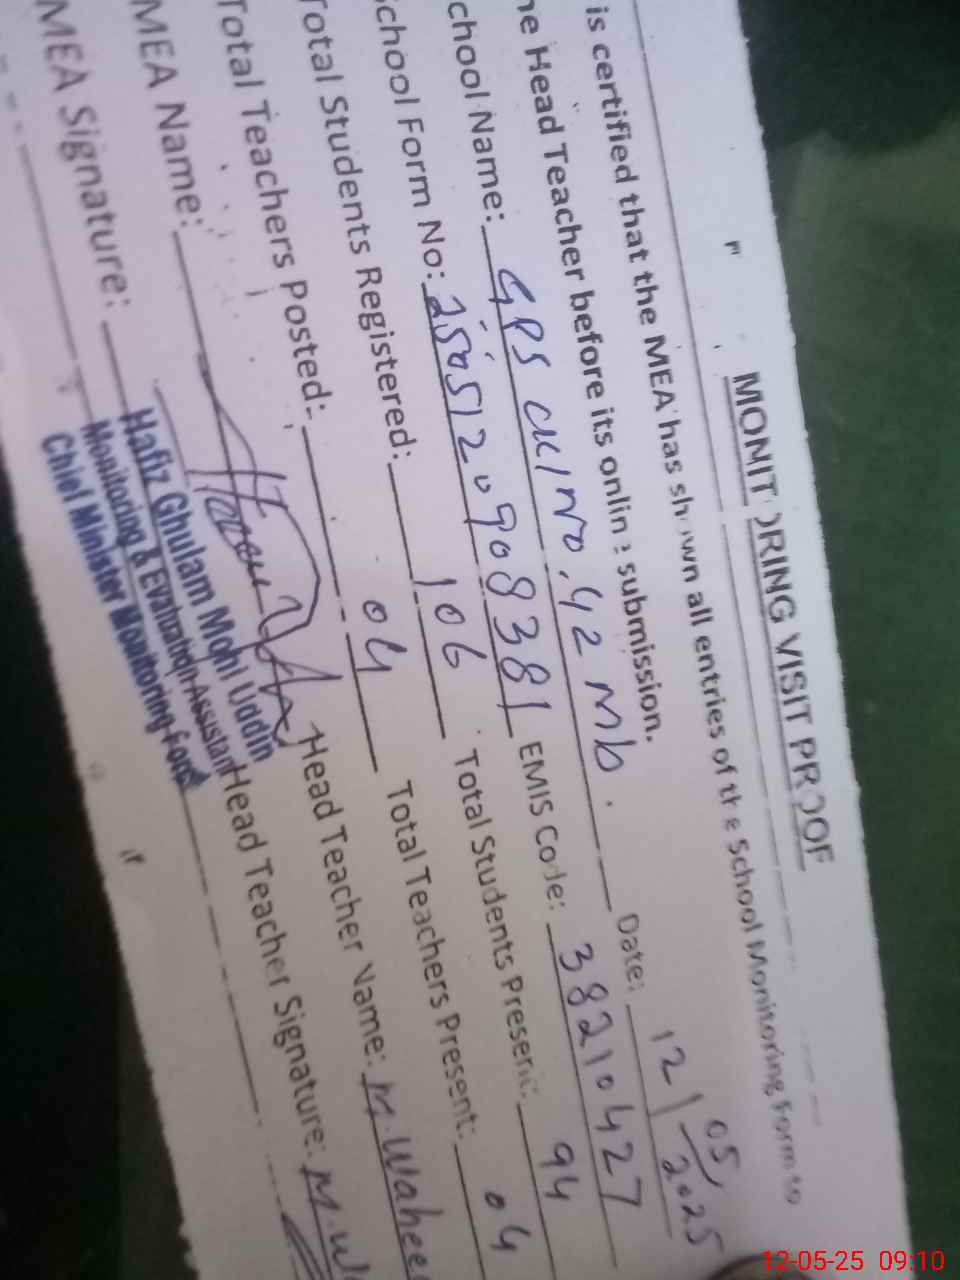 MONITORING VISIT PROOF
is certified that the MEA has shown all entries of the School Monitoring Form to
he Head Teacher before its online submission.
Date: 12/05/2025
chool Name: GPS ck/No.42 mb.
chool Form No: 250512090838 1 EMIS Code: 38210427
Total Students Registered: 106 Total Students Present: 94
Total Teachers Posted: 04 Total Teachers Present: 04
MEA Name: Head Teacher Name: M. Wahee
MEA Signature: Head Teacher Signature: M. W
Hafiz Ghulam Mohi Uddin
Monitoring & Evaluation Assistant
Chief Minister Monitoring Force
12-05-25 09:10